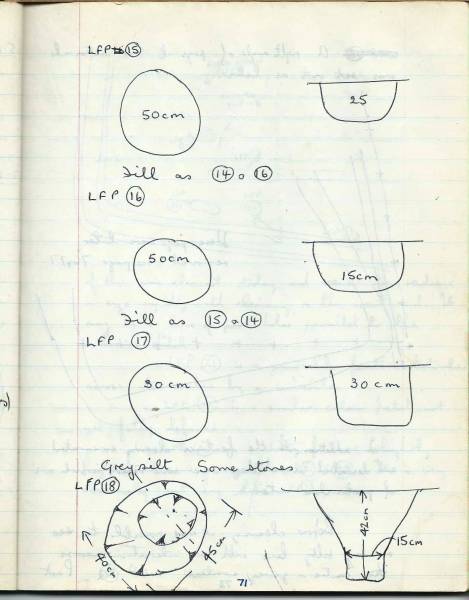 LFP 15
50cm
25
Fill as 14 o 16
LFP 16
50cm
15cm
Fill as 15 o 14
LFP 17
30cm
30cm
Grey silt Some stones
LFP 18
42cm
15cm
40cm
45cm
71